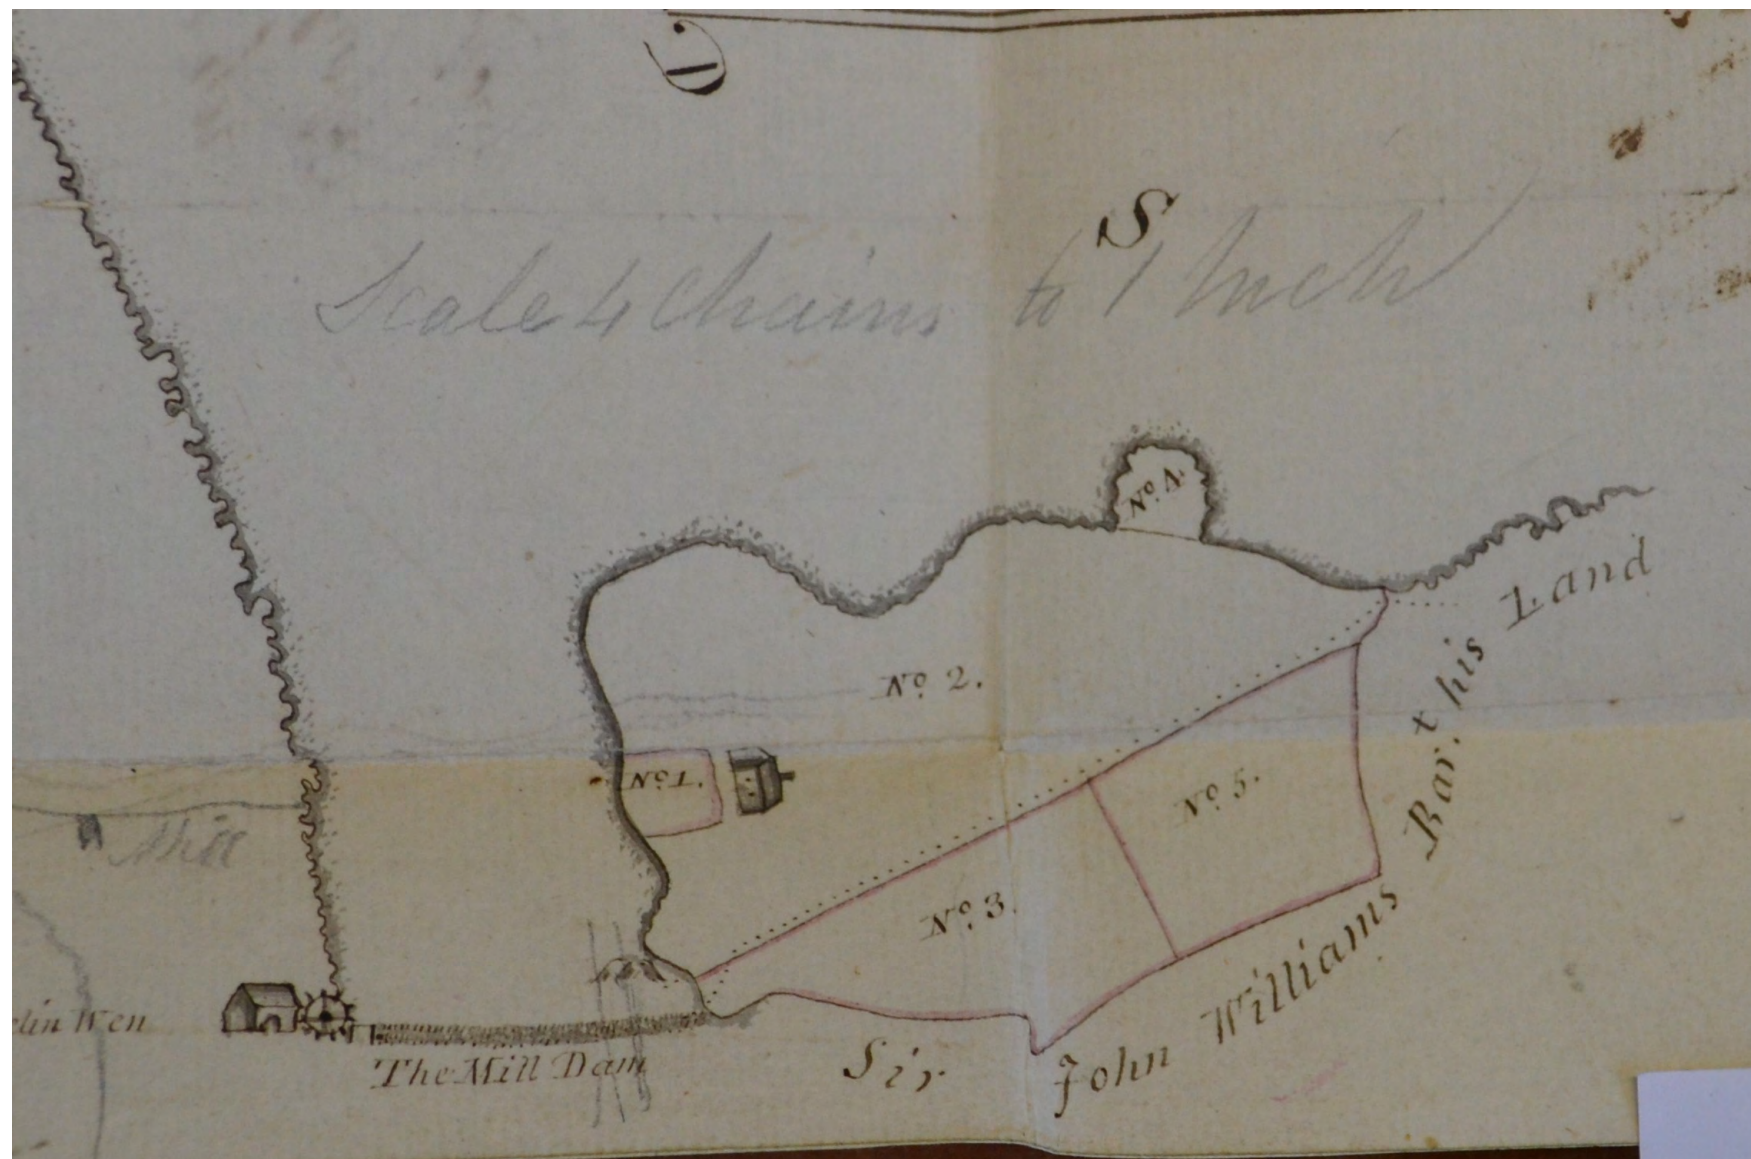 C
S
Scale 4 Chains to 1 Inch
No. 4.
No. 2.
No. 1.
No. 5.
No. 3.
Mill
lin Wen
The Mill Dam
Sir John Williams Bar.t his Land